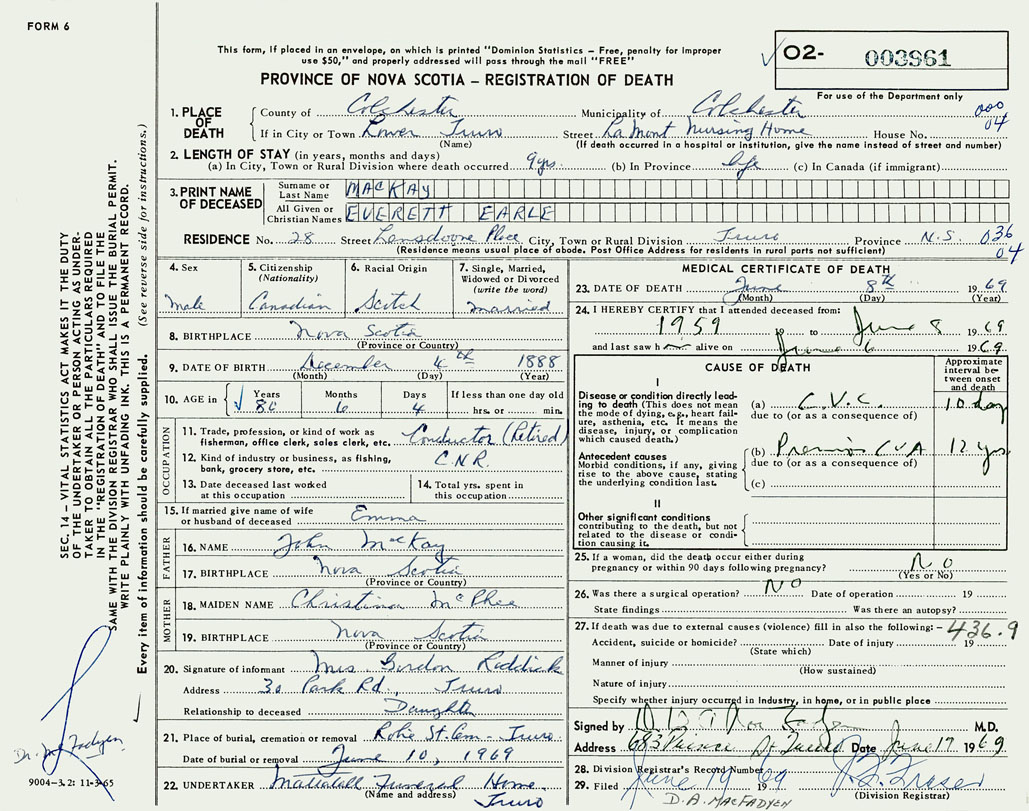 FORM 6
This form, if placed in an envelope, on which is printed "Dominion Statistics – Free, penalty for improper
use $50," and properly addressed will pass through the mail "FREE"
PROVINCE OF NOVA SCOTIA – REGISTRATION OF DEATH
O2- 003961
For use of the Department only
1. PLACE OF DEATH
County of Colchester Municipality of Colchester 000
If in City or Town Lower Truro Street La Mont Nursing Home House No. 04
(Name) (If death occurred in a hospital or institution, give the name instead of street and number)
2. LENGTH OF STAY (in years, months and days)
(a) In City, Town or Rural Division where death occurred 9 yrs. (b) In Province life (c) In Canada (if immigrant)
3. PRINT NAME OF DECEASED
Surname or Last Name MACKAY
All Given or Christian Names EVERETT EARLE
RESIDENCE No. 28 Street Lansdowne Place City, Town or Rural Division Truro Province N.S. 036
(Residence means usual place of abode. Post Office Address for residents in rural parts not sufficient) 04
4. Sex
male
5. Citizenship
(Nationality)
Canadian
6. Racial Origin
Scotch
7. Single, Married,
Widowed or Divorced
(write the word)
married
8. BIRTHPLACE Nova Scotia
(Province or Country)
9. DATE OF BIRTH December 4th 1888
(Month) (Day) (Year)
10. AGE in
Years Months Days If less than one day old
80 6 4 hrs. or min.
OCCUPATION
11. Trade, profession, or kind of work as
fisherman, office clerk, sales clerk, etc. Conductor (Retired)
12. Kind of industry or business, as fishing,
bank, grocery store, etc. C.N.R.
13. Date deceased last worked
at this occupation
14. Total yrs. spent in
this occupation
15. If married give name of wife
or husband of deceased Emma
FATHER
16. NAME John MacKay
17. BIRTHPLACE Nova Scotia
(Province or Country)
MOTHER
18. MAIDEN NAME Christina McPhee
19. BIRTHPLACE Nova Scotia
(Province or Country)
20. Signature of informant Mrs. Gordon Reddick
Address 30 Park Rd., Truro
Relationship to deceased Daughter
21. Place of burial, cremation or removal Robie St Cem - Truro
Date of burial or removal June 10, 1969
22. UNDERTAKER Mattatall Funeral Home
(Name and address) Truro
MEDICAL CERTIFICATE OF DEATH
23. DATE OF DEATH June 8th 1969
(Month) (Day) (Year)
24. I HEREBY CERTIFY that I attended deceased from:
1959 19 to June 8 1969
and last saw h alive on June 6 1969
CAUSE OF DEATH
Approximate
interval be-
tween onset
and death
I
Disease or condition directly lead-
ing to death (This does not mean
the mode of dying, e.g., heart fail-
ure, asthenia, etc. It means the
disease, injury, or complication
which caused death.)
(a) C.V.C 10 day
due to (or as a consequence of)
Antecedent causes
Morbid conditions, if any, giving
rise to the above cause, stating
the underlying condition last.
(b) Previous CVA 12 yrs
due to (or as a consequence of)
(c)
II
Other significant conditions
contributing to the death, but not
related to the disease or condi-
tion causing it.
25. If a woman, did the death occur either during
pregnancy or within 90 days following pregnancy? No
(Yes or No)
26. Was there a surgical operation? No Date of operation 19
State findings Was there an autopsy?
27. If death was due to external causes (violence) fill in also the following: – 436.9
Accident, suicide or homicide? Date of injury 19
(State which)
Manner of injury
(How sustained)
Nature of injury
Specify whether injury occurred in Industry, in home, or in public place
Signed by M.D.
Address 683 Prince St Truro Date June 17 1969
28. Division Registrar's Record Number
29. Filed June 19 1969
(Division Registrar)
D.A. MACFADYEN
SEC. 14 – VITAL STATISTICS ACT MAKES IT THE DUTY
OF THE UNDERTAKER OR PERSON ACTING AS UNDER-
TAKER TO OBTAIN ALL THE PARTICULARS REQUIRED
IN THE "REGISTRATION OF DEATH" AND TO FILE THE
SAME WITH THE DIVISION REGISTRAR WHO SHALL ISSUE THE BURIAL PERMIT.
WRITE PLAINLY WITH UNFADING INK. THIS IS A PERMANENT RECORD.
Every item of information should be carefully supplied. (See reverse side for instructions.)
Dr. McFadyen
9004–3.2: 11-3-65